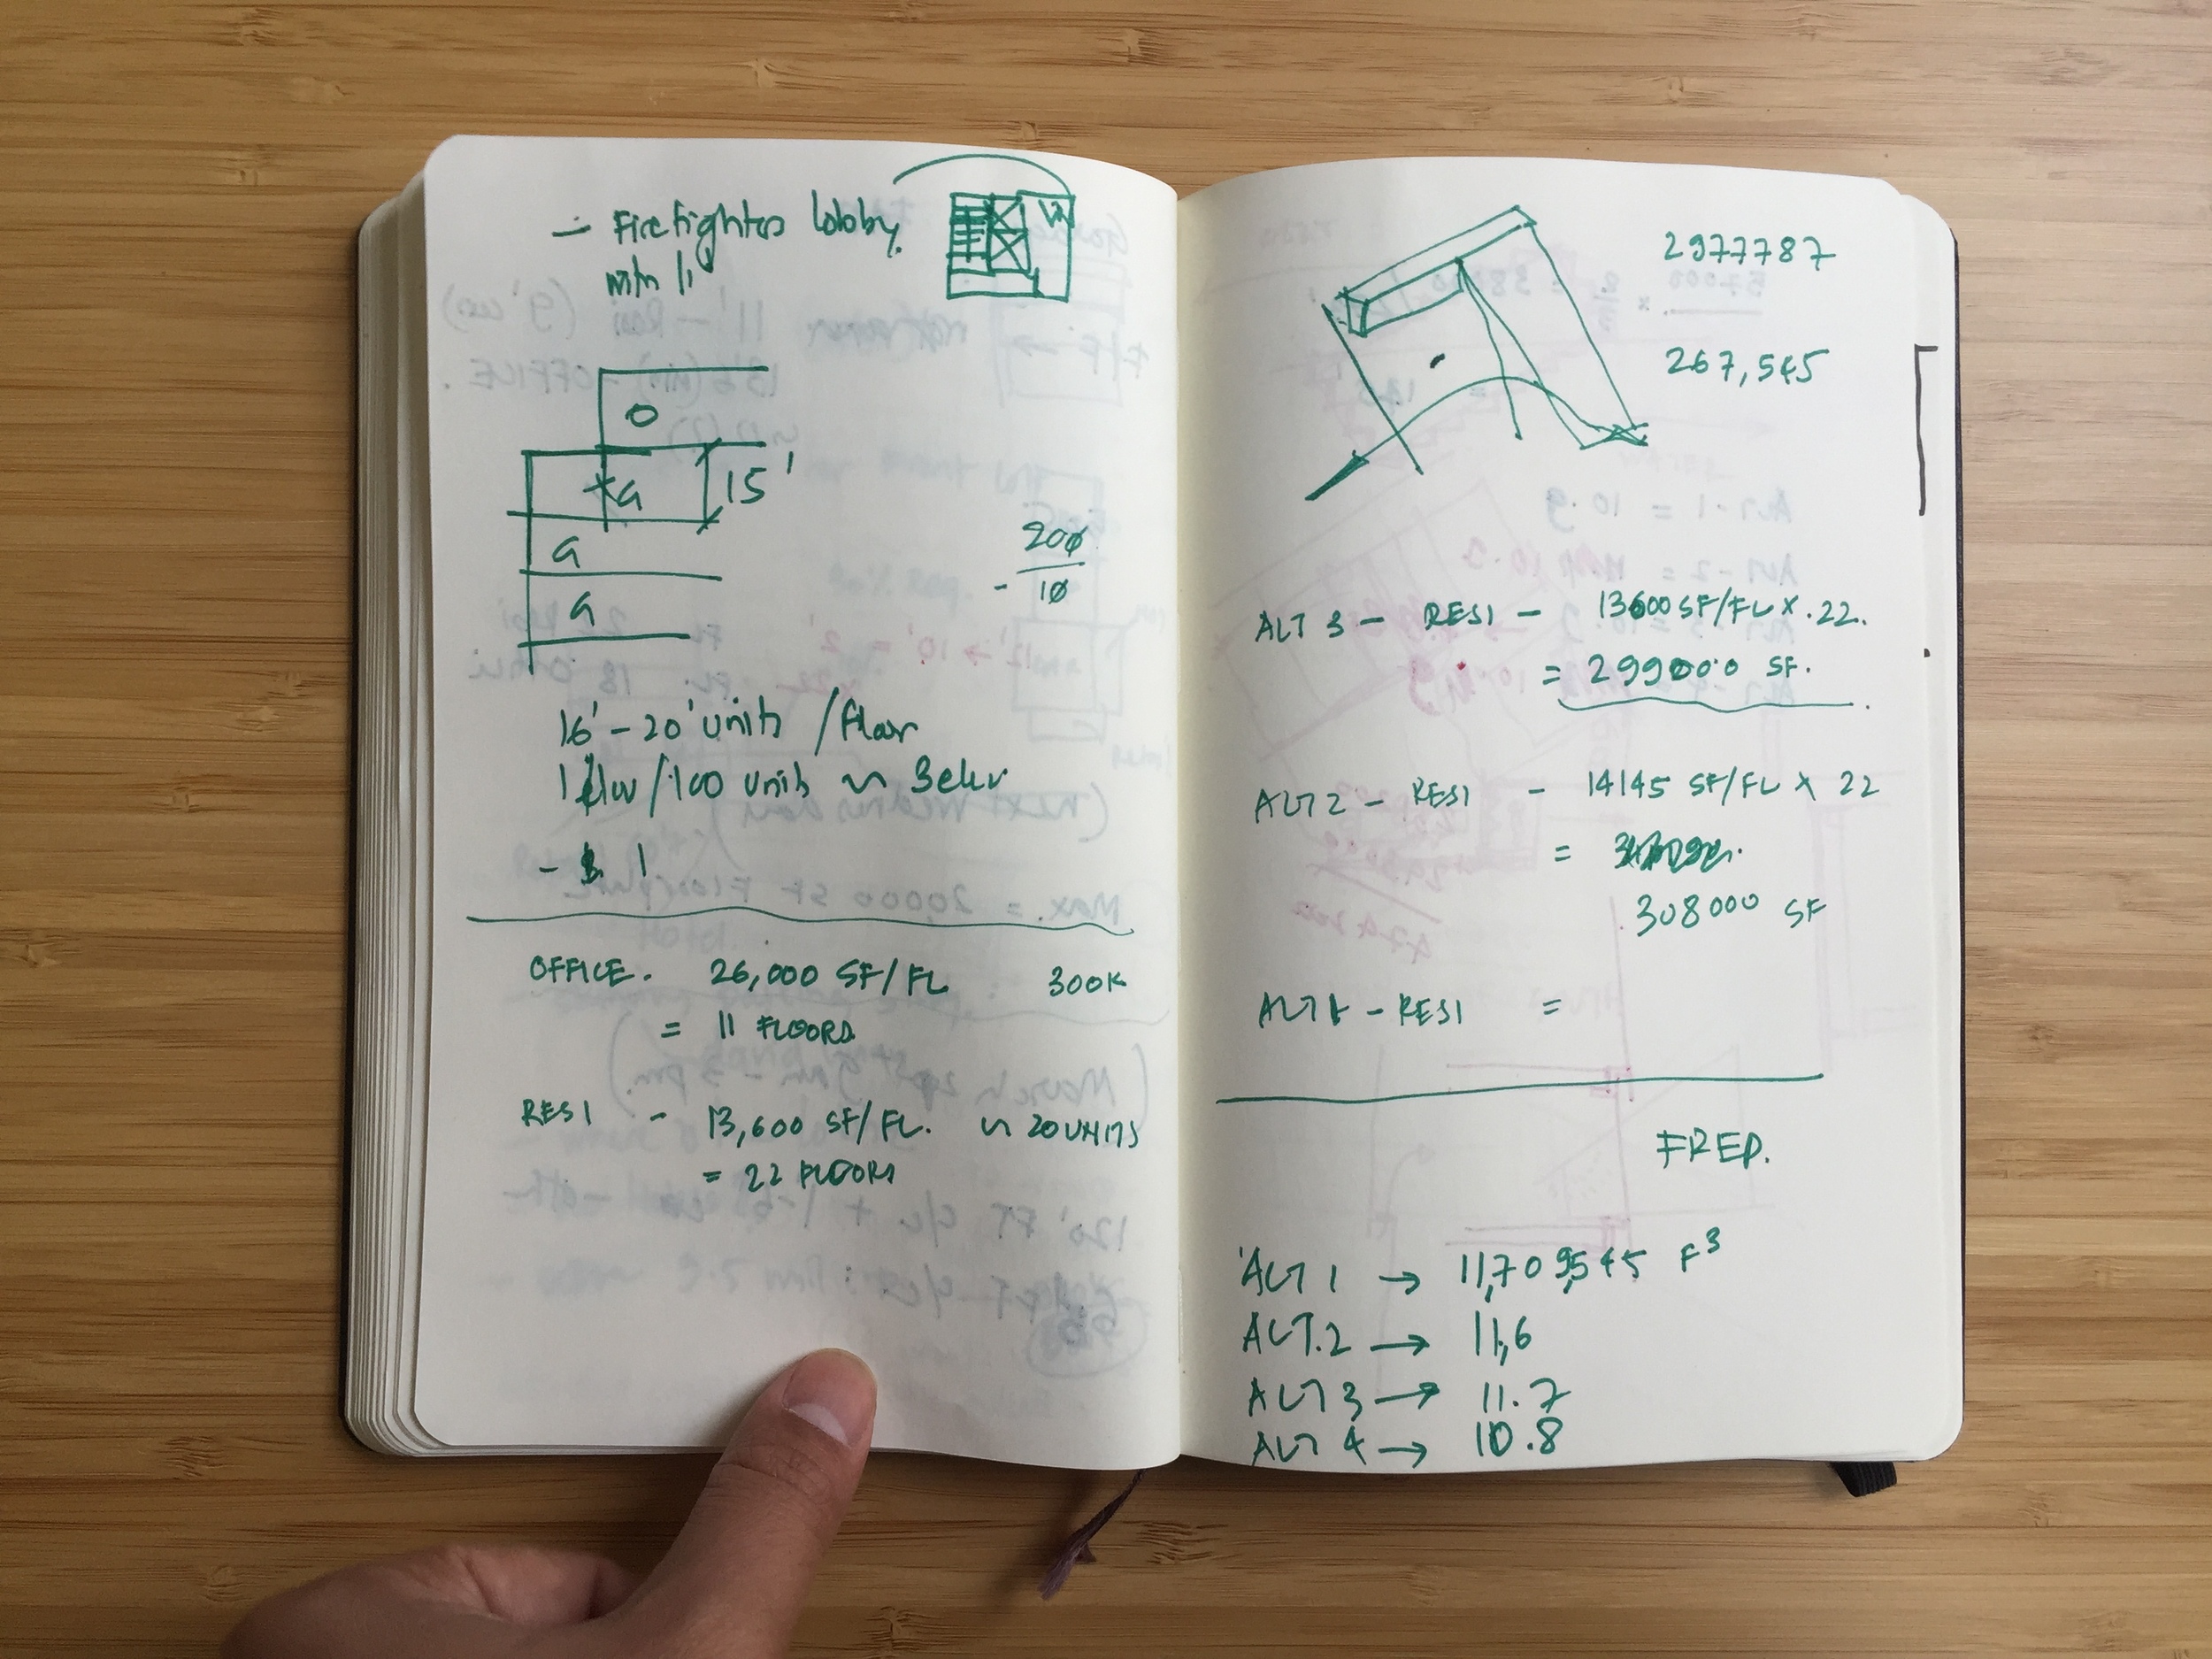 - Firefighter lobby.
with 11'
O
G
15'
G
G
200
- 10
16' - 20' units / floor
1 elev /100 units ~ 3 elev
- 1
OFFICE. 26,000 SF/FL 300K
= 11 FLOORS
RESI - 13,600 SF/FL. ~ 20 UNITS
= 22 FLOORS
2977787
267,545
ALT 3 - RESI - 13600 SF/FL X .22.
= 299000 SF.
ALT 2 - RESI - 14145 SF/FL X 22
=
308000 SF
ALT 1 - RESI =
FREP.
ALT 1 → 11,709,545 F³
ALT.2 → 11,6
ALT 3 → 11.7
ALT 4 → 10.8